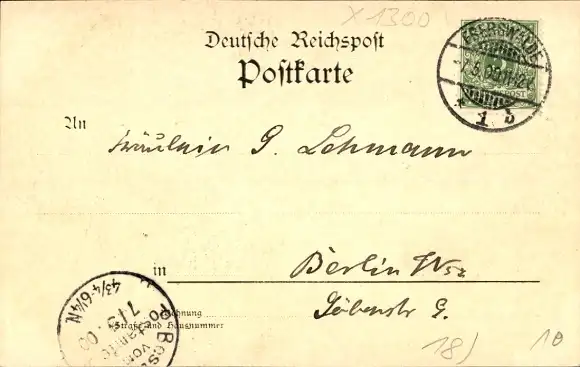 X 1300
Deutsche Reichspost
Postkarte
EBERSWALDE
1 b
An
Fräulein G. Lehmann
in
Berlin
Wohnung
Straße und Hausnummer
Göbenstr 9.
7/5 00
4¾-6¼N.
18)
10